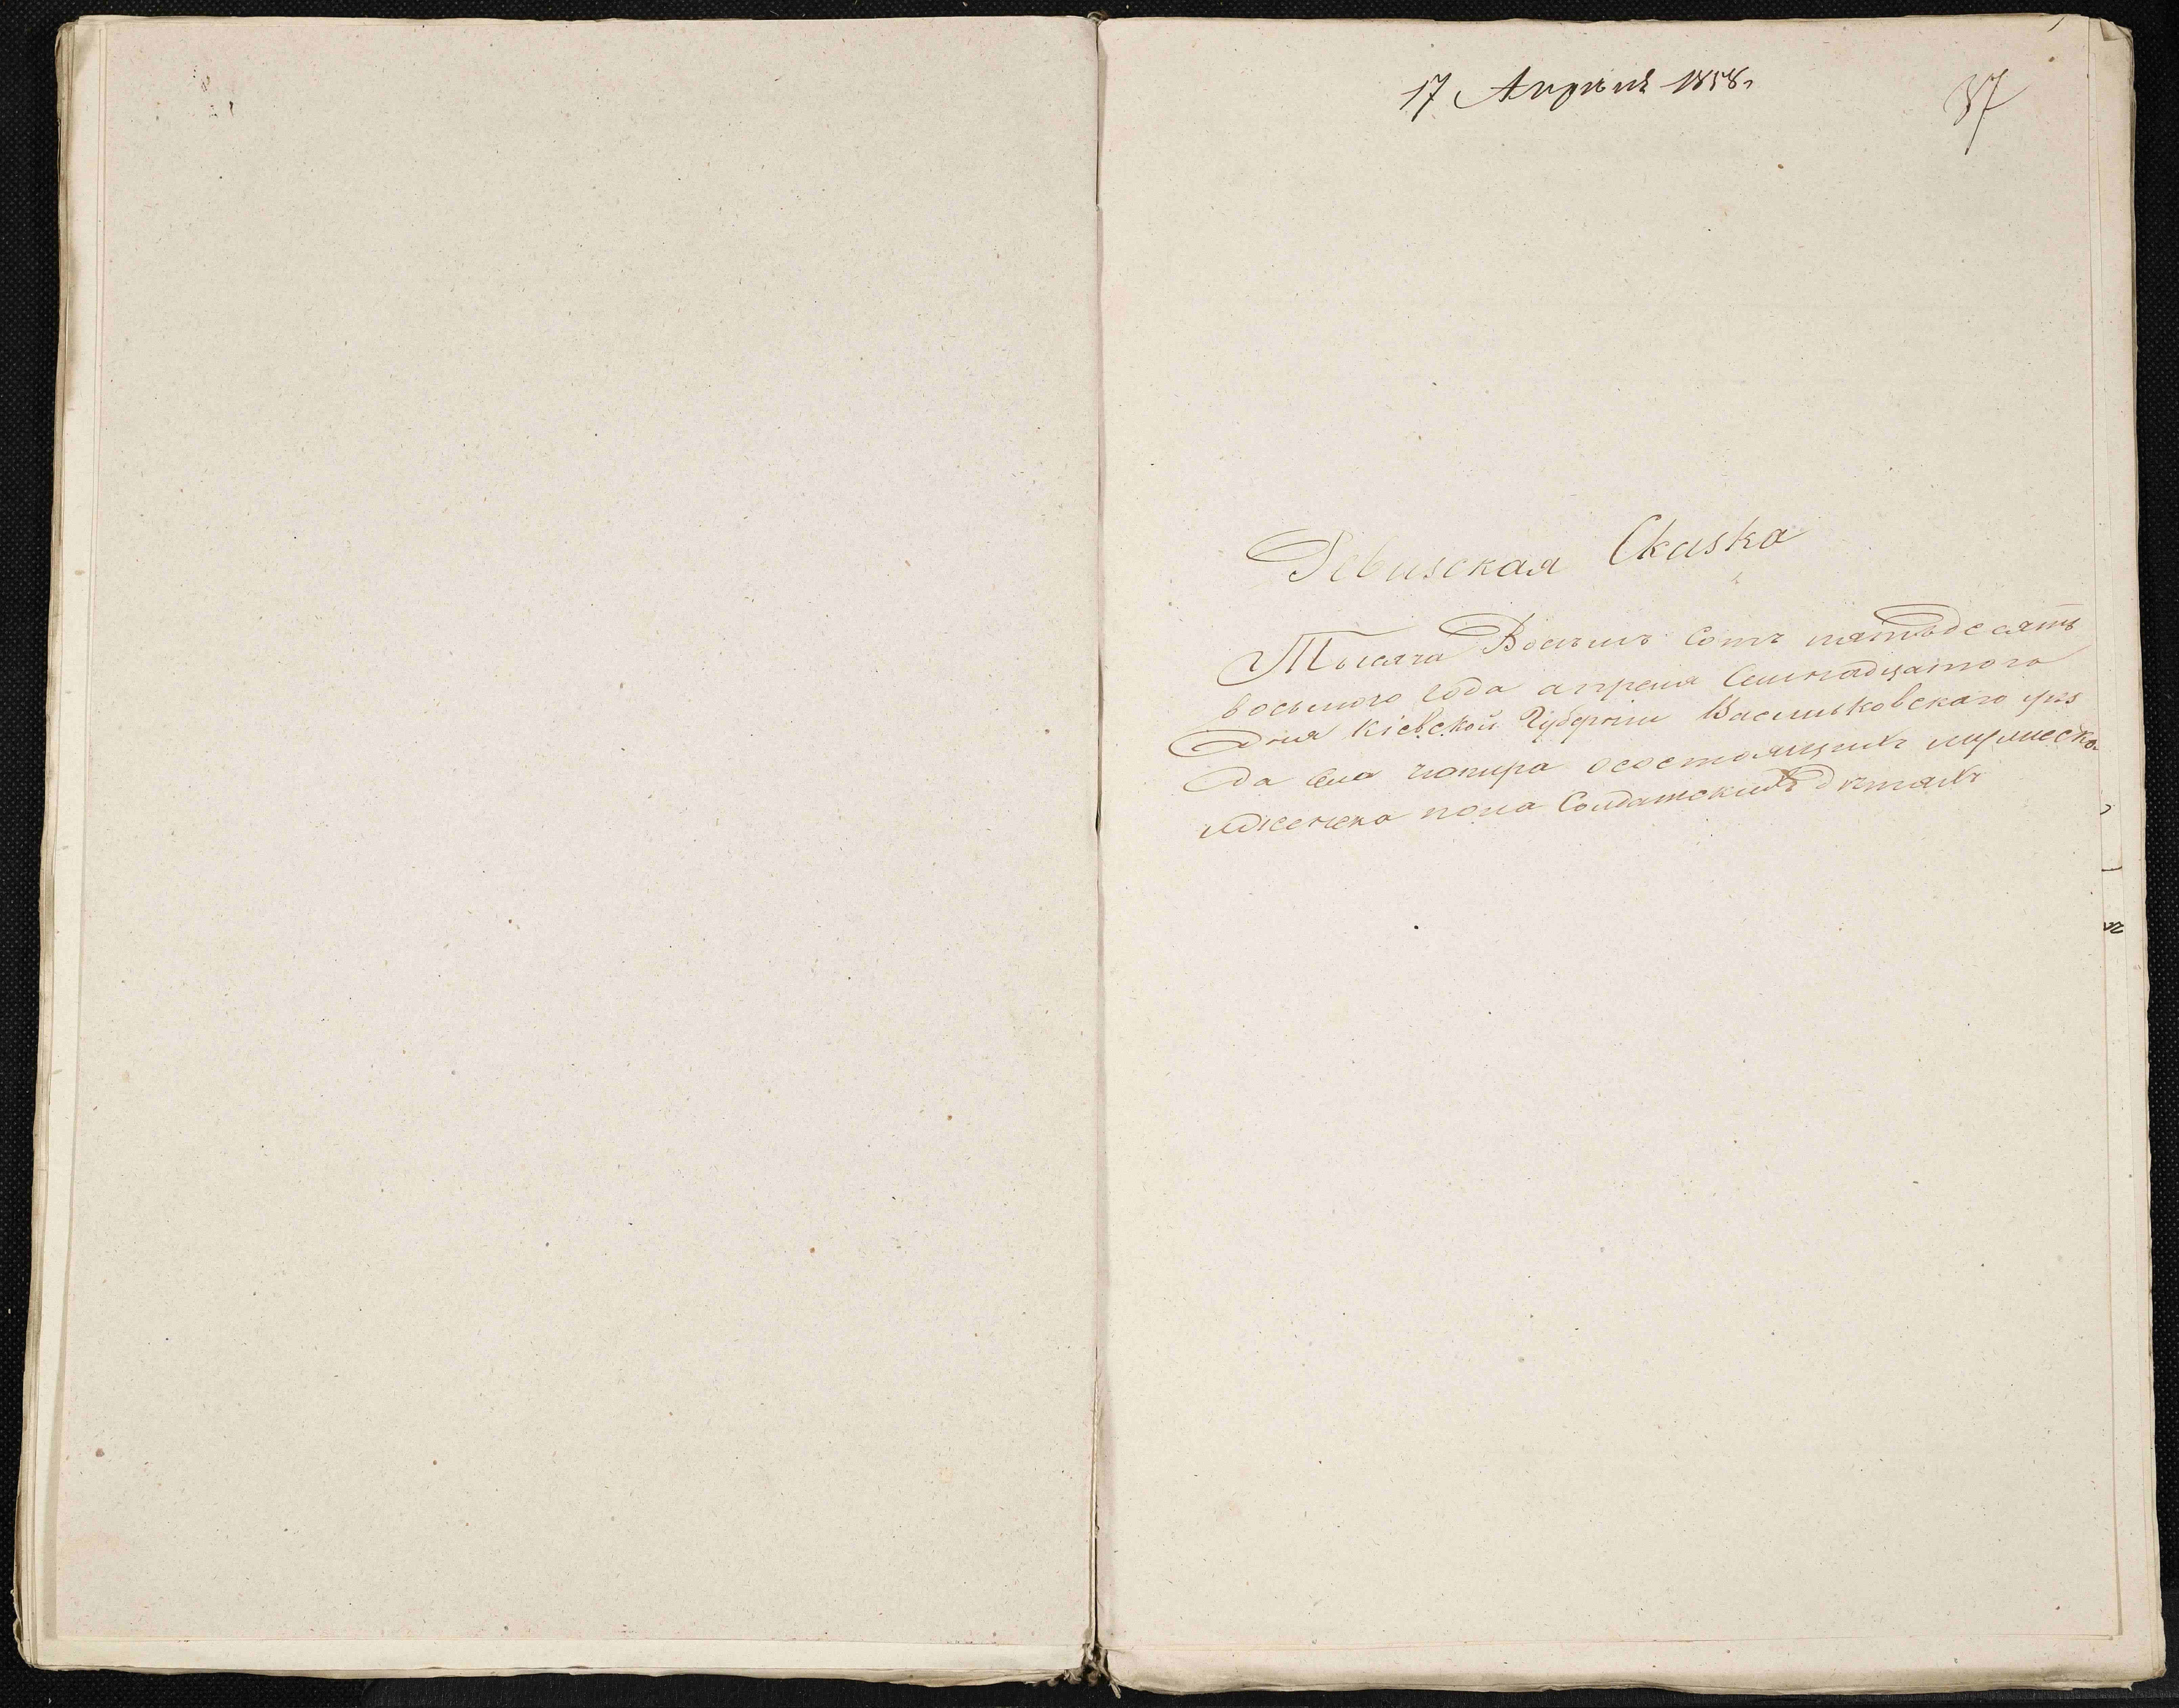 17 Апрѣля 1858 г
37
Ревизская Сказка
Тысяча Восъмъ Сотъ пятьдесять
восьмого Года апреля Семнадцатого
Дня Кіевской Губерніи Васильковскаго уѣз
да Села осостоящихъ мужеска
иженска пола Солдатскихъ дѣтяхъ